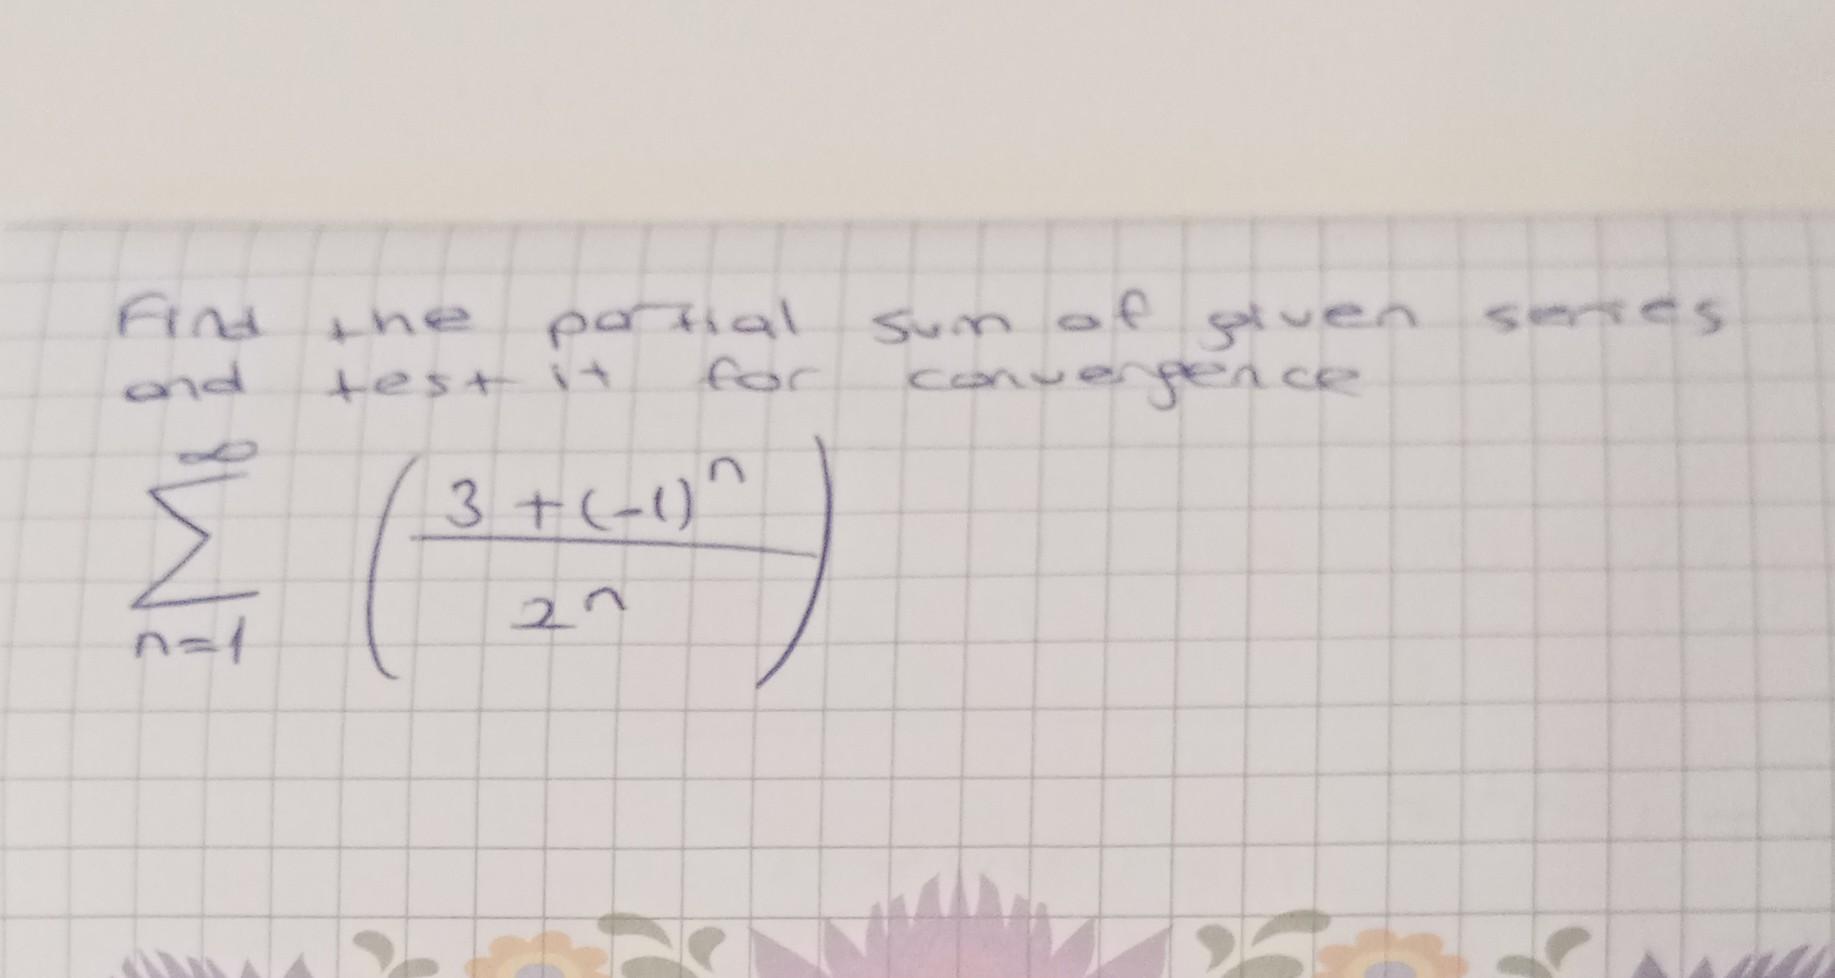 Find the partial sum of given series
and test it for convergence
∞
∑ ( 3 + (-1)^n / 2^n )
n=1